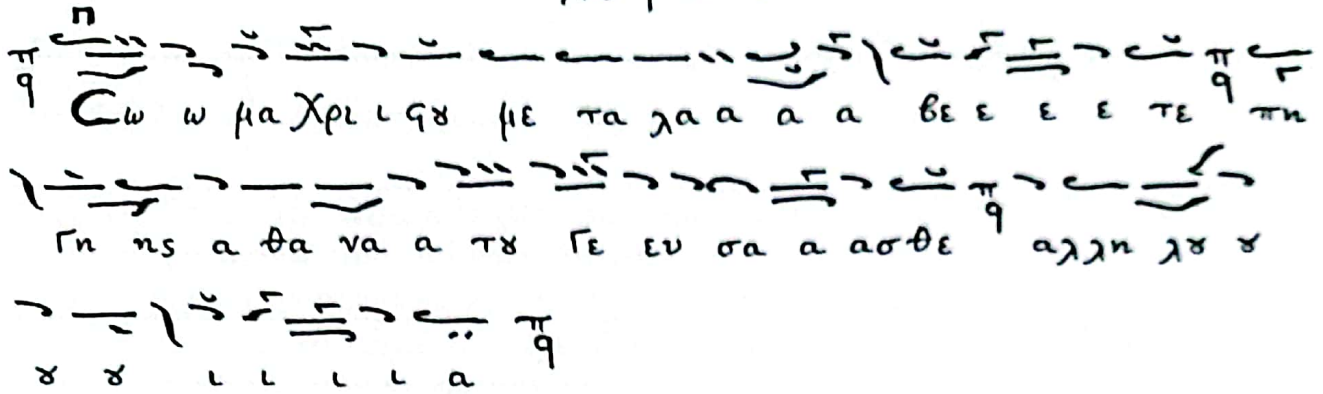 Σω ω μα Χρι ι ϛȣ με τα λα α α α βε ε ε ε τε πη
γη ης α θα να α τȣ Γε ευ σα α ασθε αλλη λȣ ȣ
ȣ ȣ ι ι ι ι α